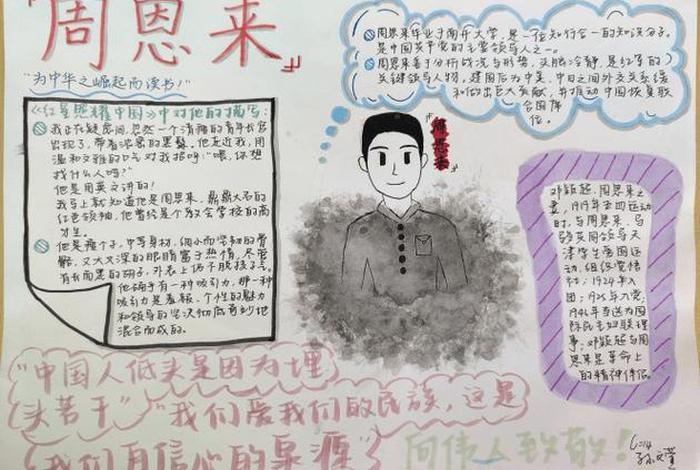 周恩来
“为中华之崛起而读书！”
《红星照耀中国》中对他的描写：
我正在疑虑间，忽然一个清瘦的青年军官
出现了，带着浓密的黑髯。他走近我，用
温和文雅的口气对我招呼：“喂，你想
找什么人吗？”
他是用英文讲的！
我马上就知道他是周恩来，鼎鼎大名的
红色领袖，他曾经是个教会学校的高
才生。
他是瘦个子，中等身材，细小而坚韧的骨
骼，又大又深的眼睛富于热情，尽管
有长而黑的胡子，外表上仍不脱孩子气。
他确乎有一种吸引力，那一种
吸引力是羞赧、个性的魅力
和领导的坚决彻底奇妙地
混合而成的。
周恩来毕业于南开大学，是一位知行合一的知识分子。
是中国共产党的主要领导人之一。
周恩来善于分析战况与形势，头脑冷静，是红军的
关键领导人物。建国后为中美、中日之间外交关系缓
和做出巨大贡献，并推动中国恢复联
合国席
位。
周恩来
邓颖超，周恩来之
妻，1919年五四运动
时，与周恩来、马
骏共同领导天
津学生爱国运
动，组织觉悟
社；1924年入
团；1925年入党；
1946年当选为国
际民主妇联理
事；邓颖超与周
恩来是革命上
的精神伴侣。
“中国人低头是因为埋
头苦干”“我们爱我们的民族，这是
我们自信心的泉源”
向伟人致敬！